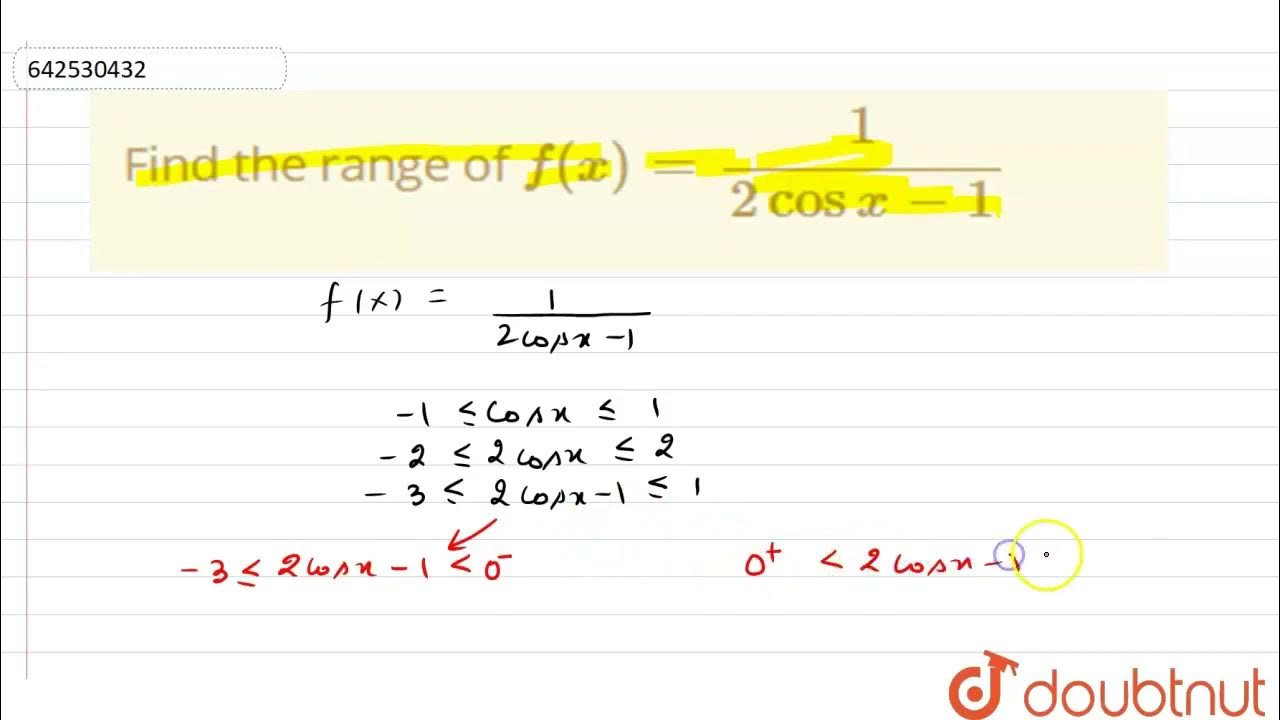 642530432
Find the range of f(x) = 1 / (2 cos x − 1)
f(x) = 1 / (2cosx − 1)
-1 ≤ cosx ≤ 1
-2 ≤ 2cosx ≤ 2
-3 ≤ 2cosx-1 ≤ 1
-3 ≤ 2cosx-1 < 0⁻
0⁺ < 2cosx-1
doubtnut